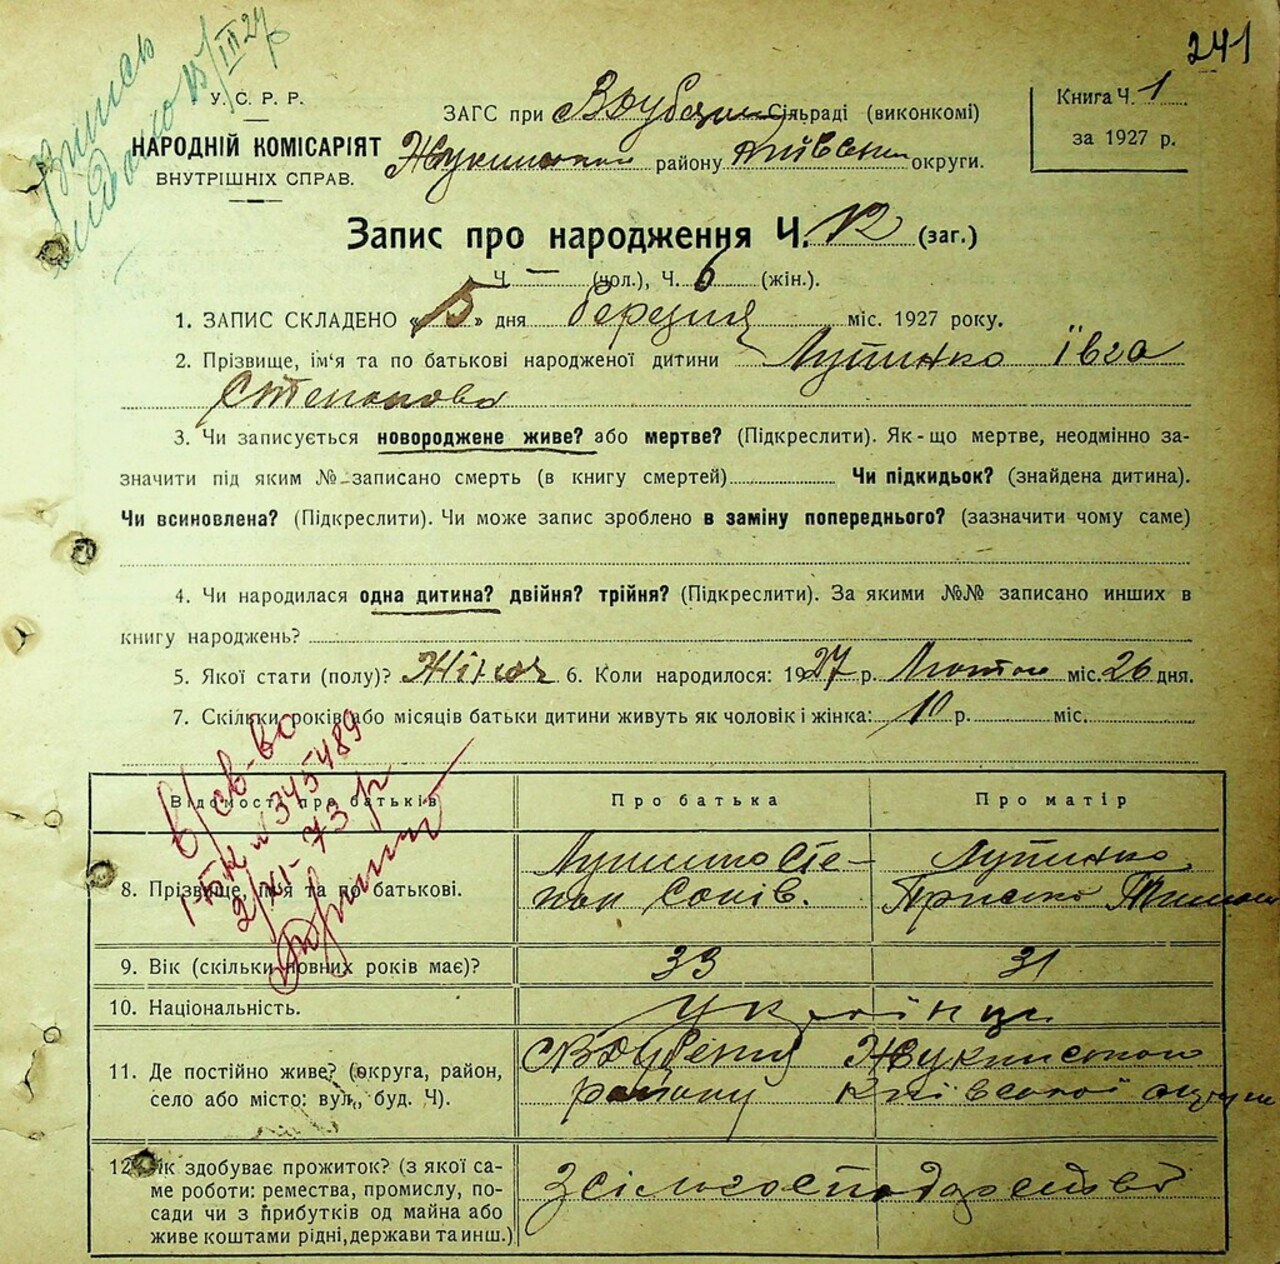 241
Випись видано 15/III 27 р
У. С. Р. Р.
НАРОДНІЙ КОМІСАРІЯТ
ВНУТРІШНІХ СПРАВ.
ЗАГС при Сільраді (виконкомі)
району округи.
Книга Ч. 1
за 1927 р.
Запис про народження Ч. 12 (заг.)
Ч. — (чол.), Ч. 6 (жін.).
1. ЗАПИС СКЛАДЕНО «15» дня березня міс. 1927 року.
2. Прізвище, ім'я та по батькові народженої дитини Лупинко Івга
Степанова
3. Чи записується новороджене живе? або мертве? (Підкреслити). Як-що мертве, неодмінно за-
значити під яким № записано смерть (в книгу смертей) Чи підкидьок? (знайдена дитина).
Чи всиновлена? (Підкреслити). Чи може запис зроблено в заміну попереднього? (зазначити чому саме)
4. Чи народилася одна дитина? двійня? трійня? (Підкреслити). За якими №№ записано инших в
книгу народжень?
5. Якої стати (полу)? Жіноч 6. Коли народилося: 1927 р. Лютого міс. 26 дня.
7. Скільки років або місяців батьки дитини живуть як чоловік і жінка: 10 р. міс.
в/св-во
І-БК № 345489
2/XI-73 р
Відомості про батьків Про батька Про матір
8. Прізвище, ім'я та по батькові. Лупинко Сте-
пан Соків. Лупинко
Приська Тимош
9. Вік (скільки повних років має)? 33 31
10. Національність. Українці
11. Де постійно живе? (округа, район,
село або місто: вул., буд. Ч). Жукинського
району Київської округи
12. Як здобуває прожиток? (з якої са-
ме роботи: ремества, промислу, по-
сади чи з прибутків од майна або
живе коштами рідні, держави та инш.) З сільгосподарства